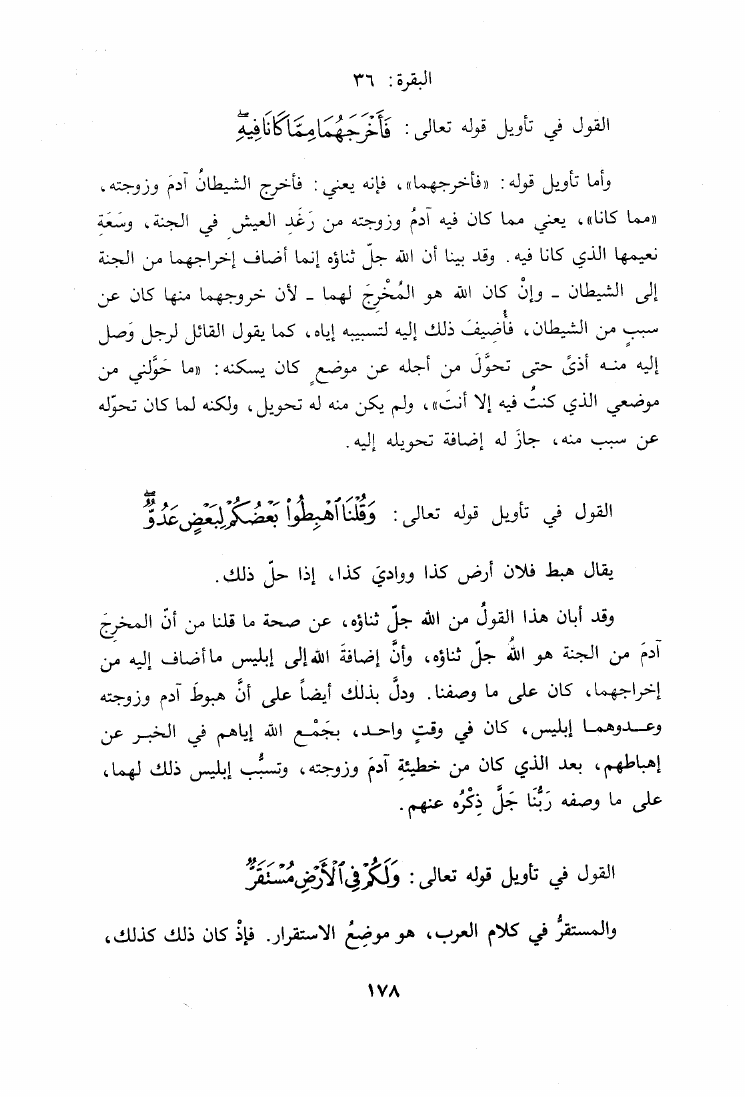 البقرة: ٣٦
القول في تأويل قوله تعالى: فَأَخْرَجَهُمَا مِمَّا كَانَا فِيهِ ۖ
وأما تأويل قوله: «فأخرجهما»، فإنه يعني: فأخرج الشيطانُ آدمَ وزوجته،
«مما كانا»، يعني مما كان فيه آدمُ وزوجته من رَغَد العيش في الجنة، وسَعَةِ
نعيمها الذي كانا فيه. وقد بينا أن الله جلّ ثناؤه إنما أضاف إخراجهما من الجنة
إلى الشيطان - وإنْ كان الله هو المُخْرِجَ لهما - لأن خروجهما منها كان عن
سببٍ من الشيطان، فأُضيفَ ذلك إليه لتسبيبه إياه، كما يقول القائل لرجل وَصل
إليه منه أذىً حتى تحوَّلَ من أجله عن موضعٍ كان يسكنه: «ما حَوَّلني من
موضعي الذي كنتُ فيه إلا أنتَ»، ولم يكن منه له تحويل، ولكنه لما كان تحوّله
عن سبب منه، جازَ له إضافة تحويله إليه.
القول في تأويل قوله تعالى: وَقُلْنَا ٱهْبِطُوا۟ بَعْضُكُمْ لِبَعْضٍ عَدُوٌّ ۖ
يقال هبط فلان أرض كذا وواديَ كذا، إذا حلّ ذلك.
وقد أبان هذا القولُ من الله جلّ ثناؤه، عن صحة ما قلنا من أنّ المخرِجَ
آدمَ من الجنة هو اللهُ جلّ ثناؤه، وأنَّ إضافةَ الله إلى إبليس ما أضاف إليه من
إخراجهما، كان على ما وصفنا. ودلَّ بذلك أيضاً على أنَّ هبوطَ آدم وزوجته
وعدوهما إبليس، كان في وقتٍ واحد، بجَمْعِ الله إياهم في الخبر عن
إهباطهم، بعد الذي كان من خطيئةِ آدمَ وزوجته، وتسبُّب إبليس ذلك لهما،
على ما وصفه رَبُّنَا جَلَّ ذِكْرُه عنهم.
القول في تأويل قوله تعالى: وَلَكُمْ فِى ٱلْأَرْضِ مُسْتَقَرٌّ
والمستقرُّ في كلام العرب، هو موضِعُ الاستقرار. فإذْ كان ذلك كذلك،
١٧٨